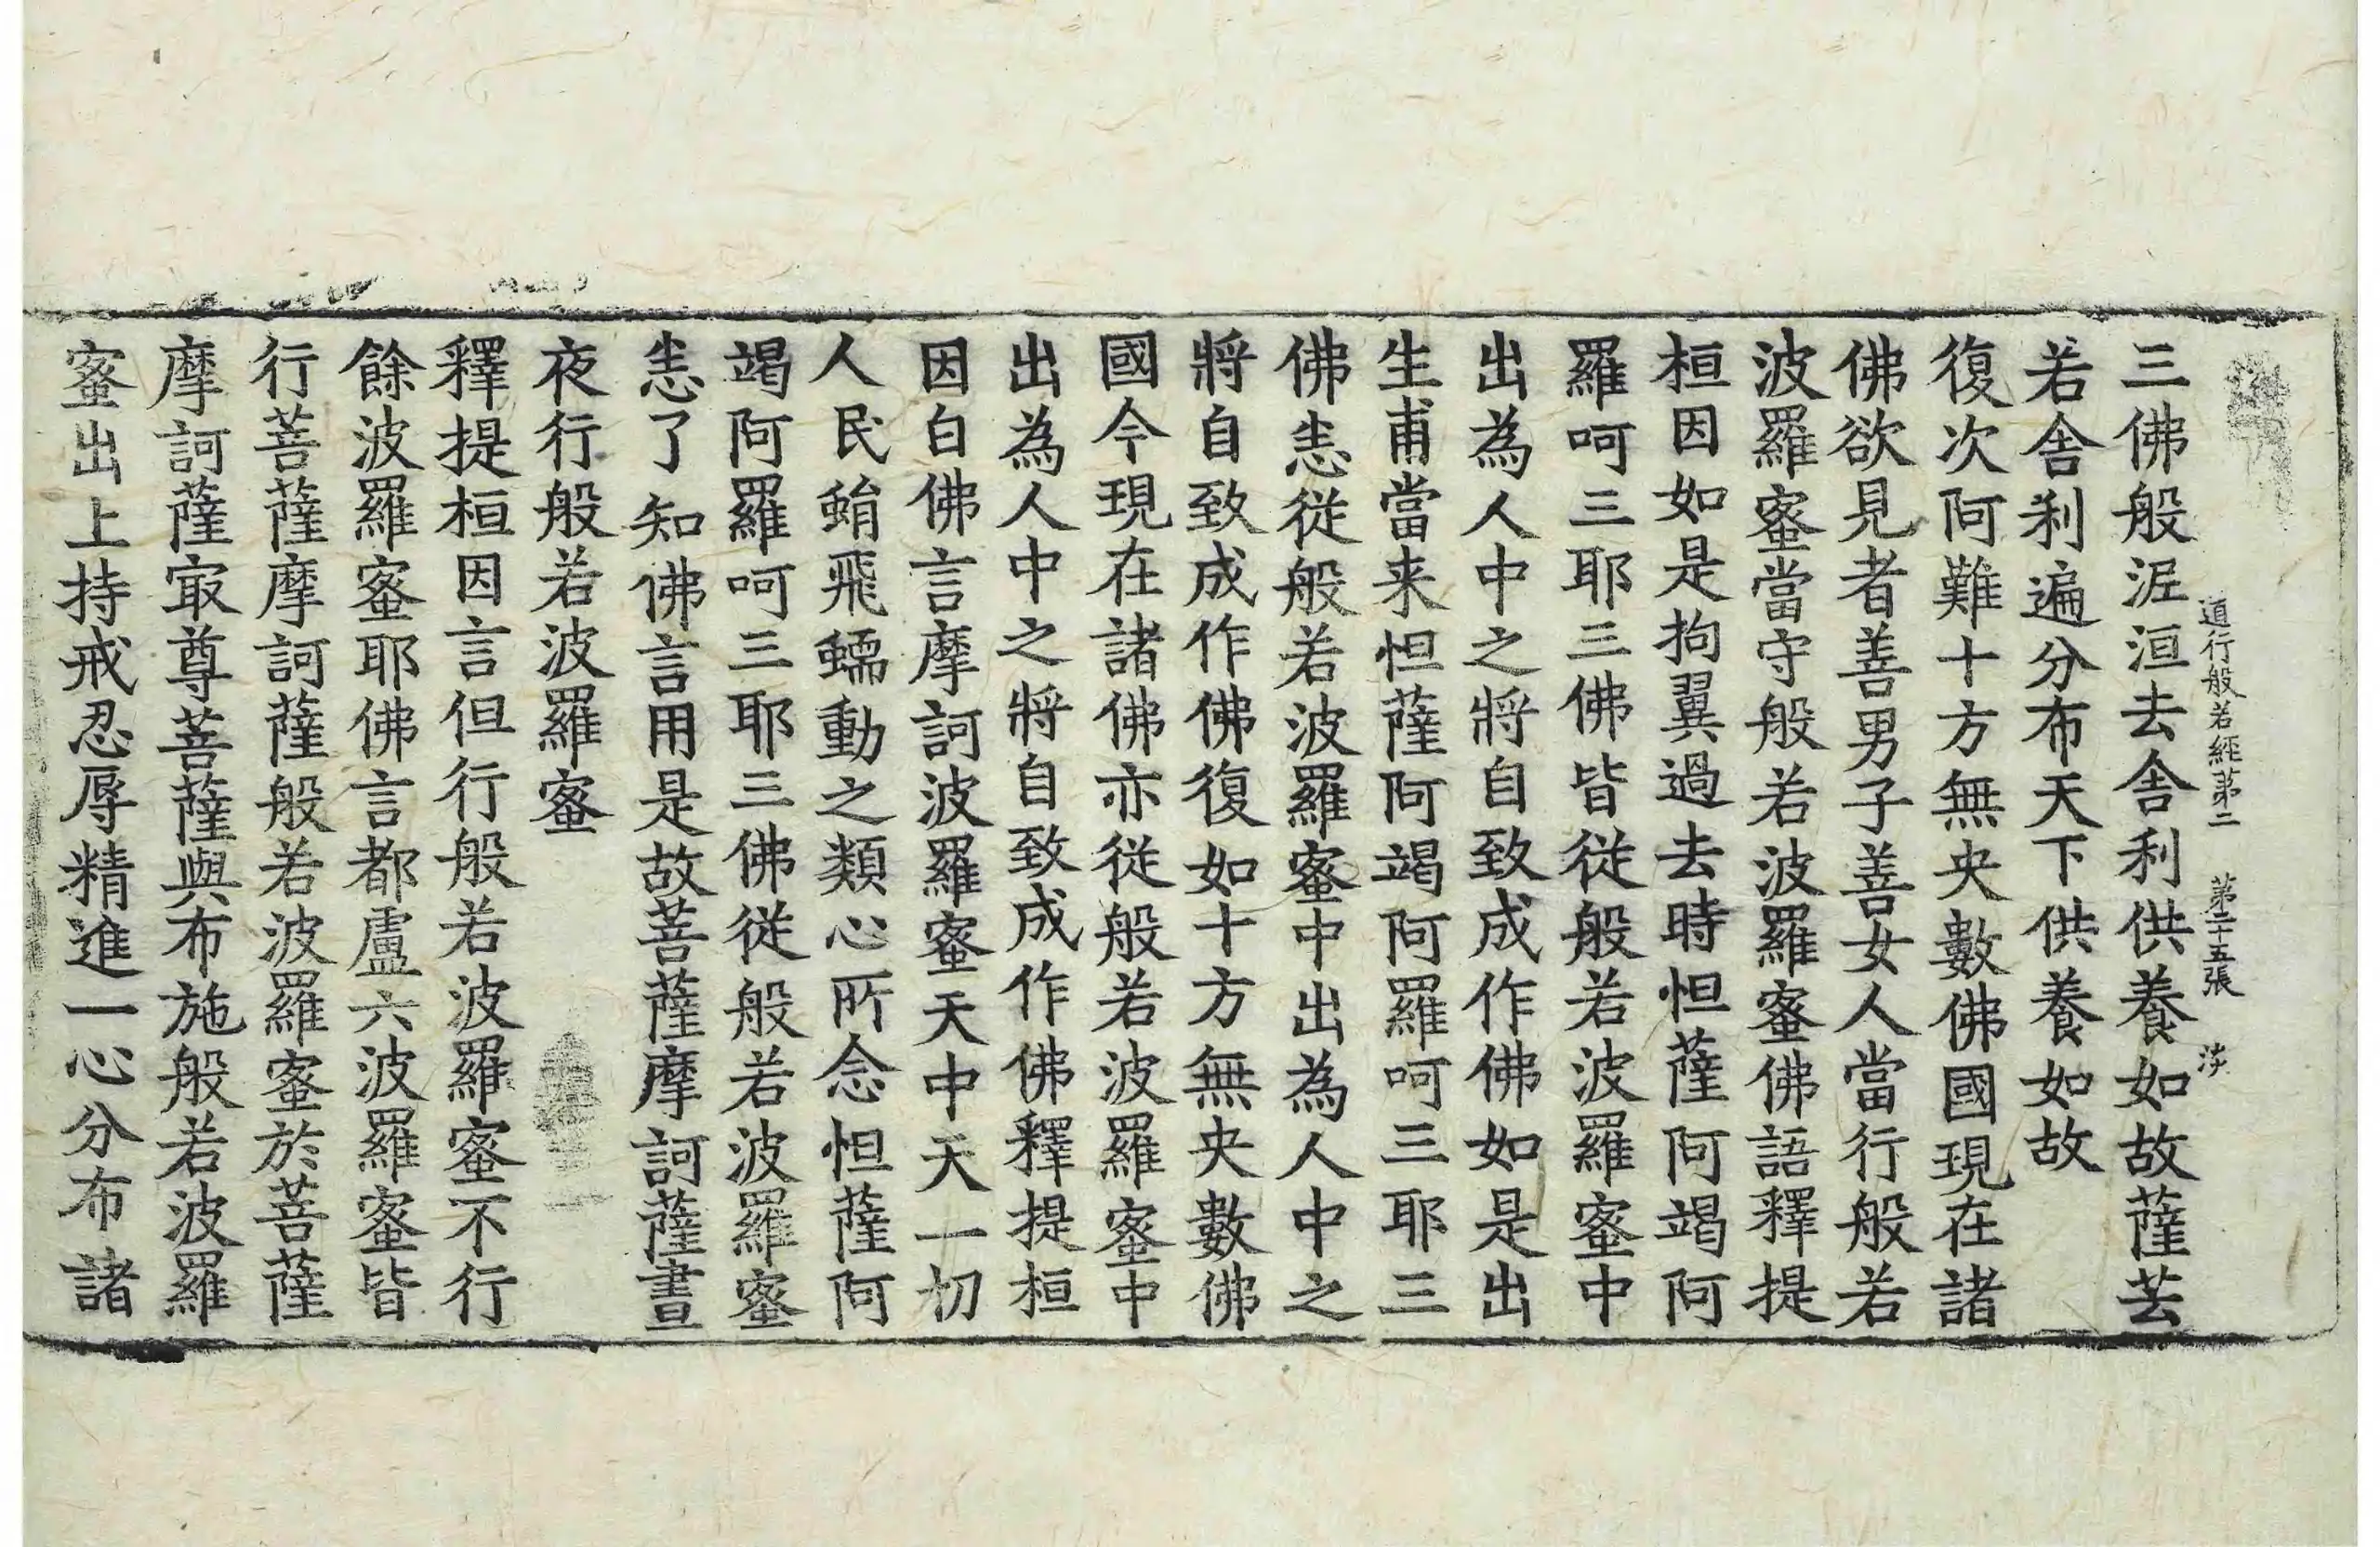 道行般若經第二 第二十五張 淡
三佛般泥洹去舍利供養如故薩芸
若舍利遍分布天下供養如故
復次阿難十方無央數佛國現在諸
佛欲見者善男子善女人當行般若
波羅蜜當守般若波羅蜜佛語釋提
桓因如是拘翼過去時怛薩阿竭阿
羅呵三耶三佛皆從般若波羅蜜中
出為人中之將自致成作佛如是出
生甫當来怛薩阿竭阿羅呵三耶三
佛恚從般若波羅蜜中出為人中之
將自致成作佛復如十方無央數佛
國今現在諸佛亦從般若波羅蜜中
出為人中之將自致成作佛釋提桓
因白佛言摩訶波羅蜜天中天一切
人民蜎飛蠕動之類心所念怛薩阿
竭阿羅呵三耶三佛從般若波羅蜜
恚了知佛言用是故菩薩摩訶薩晝
夜行般若波羅蜜
釋提桓因言但行般若波羅蜜不行
餘波羅蜜耶佛言都盧六波羅蜜皆
行菩薩摩訶薩般若波羅蜜於菩薩
摩訶薩冣尊菩薩與布施般若波羅
蜜出上持戒忍辱精進一心分布諸